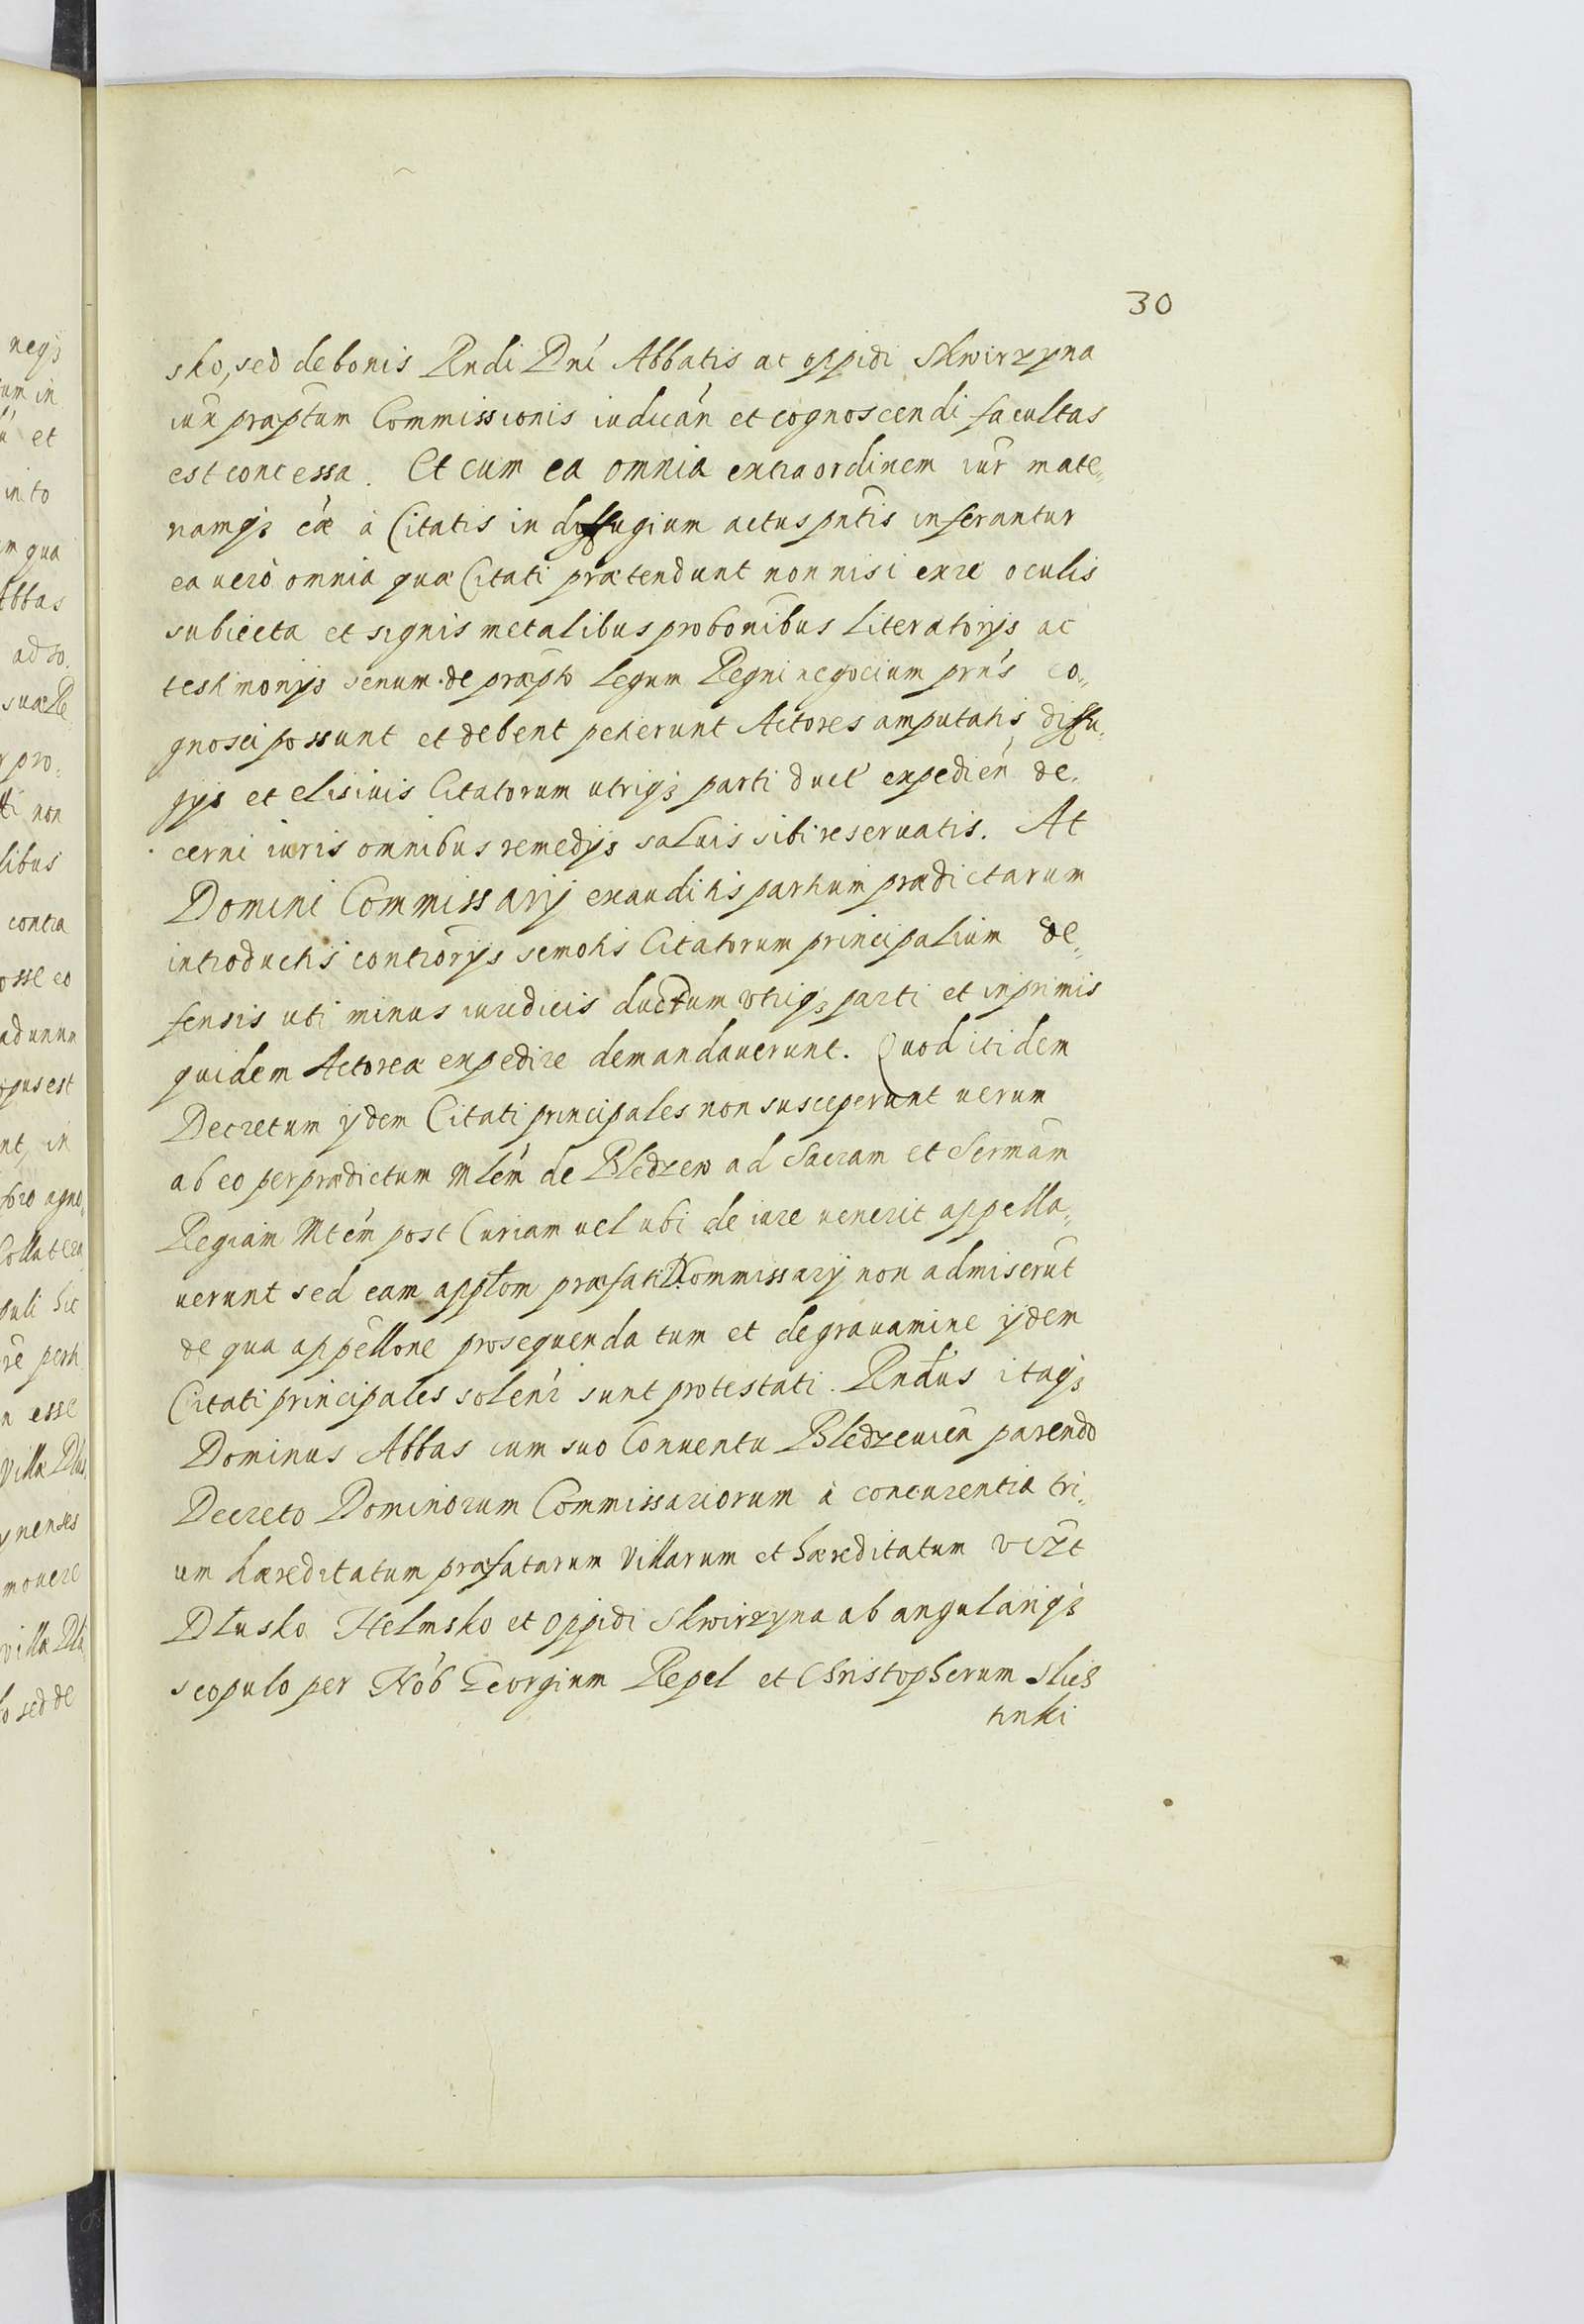 30
sko, sed de bonis Rndi Dni Abbatis ac oppidi Skwirzyna
iux præptum Commissionis iudican et cognoscendi facultas
est concessa. Et cum ea omnia extra ordinem iur mate„
riamq3 eæ à Citatis in diffugium actus pntis inferantur
ea uerò omnia quæ Citati prætendunt non nisi ex re oculis
subiecta et signis metalibus probonibus literatorijs ac
testimonijs senum de præpto legum Regni negocium prns co„
gnosci possunt et debent petierunt Actores amputatis diffu„
gijs et elisiuis Citatorum utriq3 parti duct expedien de„
cerni iuris omnibus remedijs saluis sibi reseruatis. At
Domini Commissarij exauditis partium prædictarum
introductis controrijs semotis Citatorum principalium de„
fensis uti minus iuridicis ductum vtriq3 parti et inprimis
quidem Actoreæ expedire demandauerunt. Quod itidem
Decretum ijdem Citati principales non susceperunt uerum
ab eo per prædictum Mlem de Bledzew ad Sacram et Sermam
Regiam Mtem post Curiam uel ubi de iure uenerit appella„
uerunt sed eam appltom præfati D Commissarij non admiserut
de qua appellone prosequenda tum et de grauamine ijdem
Citati principales solenr sunt protestati. Rndus itaq3
Dominus Abbas cum suo Conuentu Bledzeuien parendo
Decreto Dominorum Commissariorum à concurentia tri„
um hæreditatum præfatarum Villarum et hæreditatum vizt
Dłusko Helmsko et oppidi Skwirzyna ab angulariq3
scopulo per Nob Georgium Repel et Christopherum